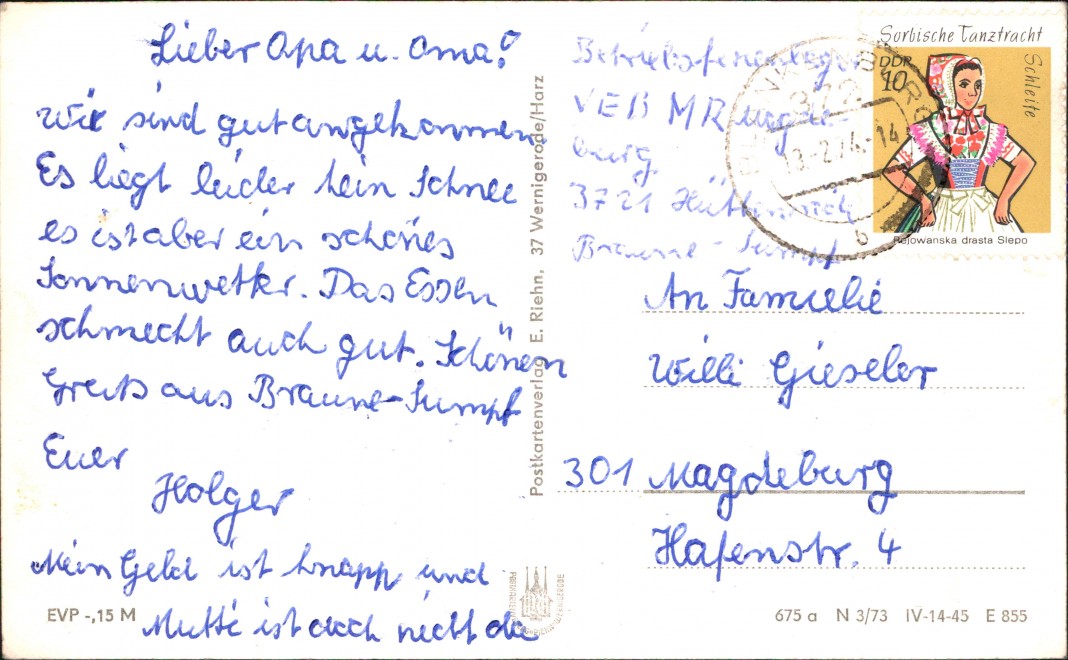 Lieber Opa u. Oma!
Wir sind gut angekommen
Es liegt leider kein Schnee
es ist aber ein schönes
Sonnenwetter. Das Essen
schmeckt auch gut. Schönen
Gruß aus Braune-Sumpf
Euer
Holger
Mein Geld ist knapp und
Mutti ist doch nicht da
EVP -,15 M
Postkartenverlag E. Riehn, 37 Wernigerode/Harz
Betriebsferienlager
VEB MR Magde-
burg
3721 Hüttenrode
Braune-Sumpf
Sorbische Tanztracht
Schleife
DDR
10
Rejowanska drasta Slepo
372
13.-2.74.-14
b
An Familie
Willi Gieseler
301 Magdeburg
Hafenstr. 4
675 a N 3/73 IV-14-45 E 855